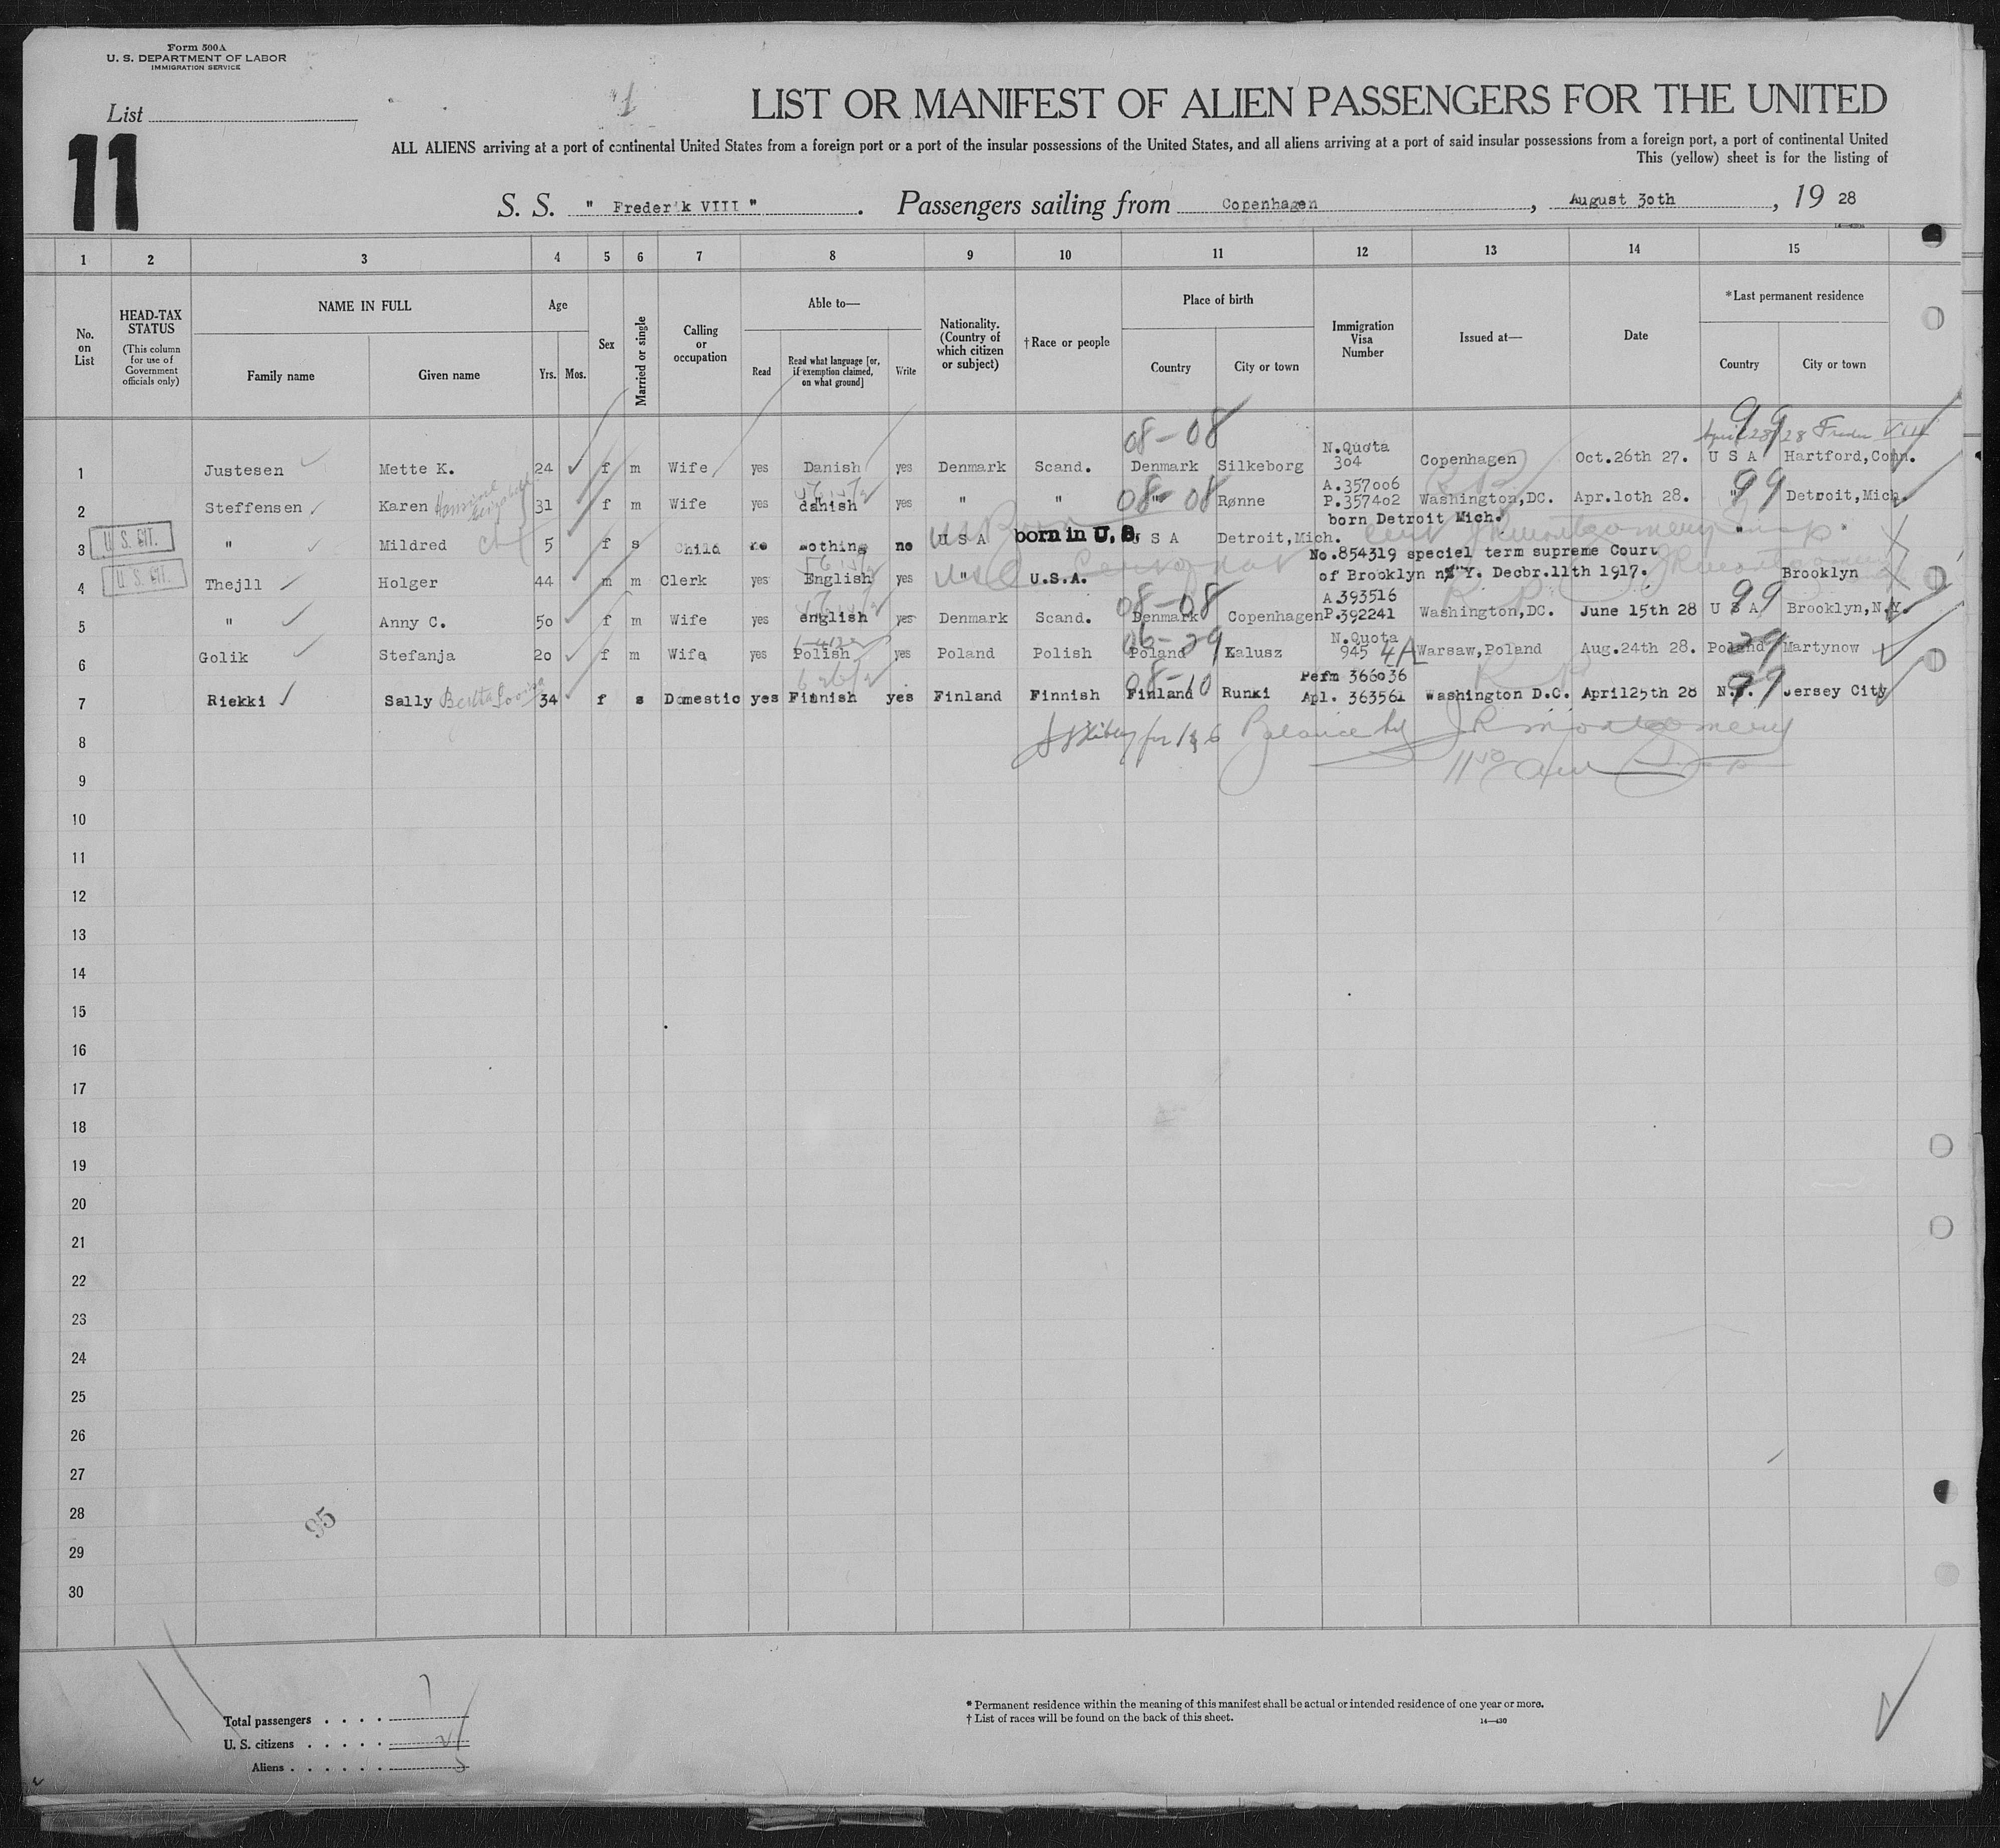 Form 500A
U. S. DEPARTMENT OF LABOR
IMMIGRATION SERVICE
List
11
LIST OR MANIFEST OF ALIEN PASSENGERS FOR THE UNITED
ALL ALIENS arriving at a port of continental United States from a foreign port or a port of the insular possessions of the United States, and all aliens arriving at a port of said insular possessions from a foreign port, a port of continental United
This (yellow) sheet is for the listing of
S. S. " Frederik VIII " . Passengers sailing from Copenhagen , August 30th , 19 28
1 2 3 4 5 6 7 8 9 10 11 12 13 14 15
No. on List
HEAD-TAX STATUS (This column for use of Government officials only)
NAME IN FULL Family name Given name
Age Yrs. Mos.
Sex
Married or single
Calling or occupation
Able to— Read Read what language [or, if exemption claimed, on what ground] Write
Nationality. (Country of which citizen or subject)
†Race or people
Place of birth Country City or town
Immigration Visa Number
Issued at—
Date
*Last permanent residence Country City or town
08-08 99
April 28/28 Freder VIII
N.Quota
1 Justesen Mette K. 24 f m Wife yes Danish yes Denmark Scand. Denmark Silkeborg 304 Copenhagen Oct.26th 27. U S A Hartford,Conn.
A.357006
2 Steffensen Karen 31 f m Wife yes danish yes " " 08-08 " Rønne P.357402 Washington,DC. Apr.10th 28. " 99 Detroit,Mich.
born Detroit Mich.
3 U. S. CIT. " Mildred 5 f s Child no nothing no U S A born in U. S. U S A Detroit,Mich. " "
No.854319 speciel term supreme Court
4 U. S. CIT. Thejll Holger 44 m m Clerk yes English yes " U.S.A. of Brooklyn N.Y. Decbr.11th 1917. Brooklyn
08-08 A.393516 99
5 " Anny C. 50 f m Wife yes english yes Denmark Scand. Denmark Copenhagen P.392241 Washington,DC. June 15th 28 U S A Brooklyn,N.Y.
N.Quota
6 Golik Stefanja 20 f m Wife yes Polish yes Poland Polish Poland Kalusz 945 Warsaw,Poland Aug.24th 28. Poland Martynow
08-10 Perm 366036
7 Riekki Sally 34 f s Domestic yes Finnish yes Finland Finnish Finland Runki Apl. 363561 Washington D.C. April25th 28 N.J. Jersey City
8 for 1 & 6 Balance by J R Montgomery
9
10
11
12
13
14
15
16
17
18
19
20
21
22
23
24
25
26
27
28
29
30
95
Total passengers . . . . 7
U. S. citizens . . . . . 2
Aliens . . . . . . 5
* Permanent residence within the meaning of this manifest shall be actual or intended residence of one year or more.
† List of races will be found on the back of this sheet.
14—430